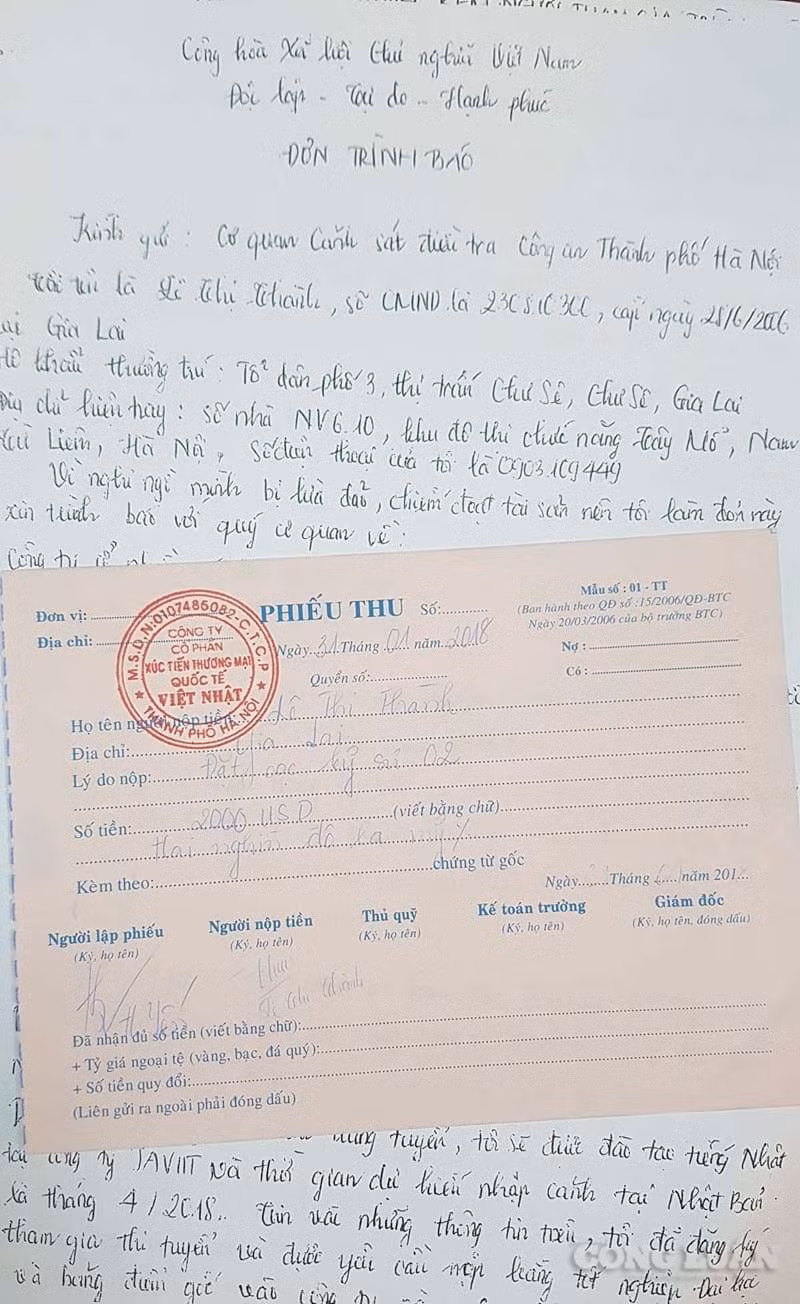 Cộng hòa Xã hội Chủ nghĩa Việt Nam
Độc lập - Tự do - Hạnh phúc
ĐƠN TRÌNH BÁO
Kính gửi: Cơ quan Cảnh sát điều tra Công an Thành phố Hà Nội
Tôi tên là Lê Thị Thanh, số CMND là, cấp ngày 28/6/2006
tại Gia Lai
Hộ khẩu thường trú: Tổ dân phố 3, thị trấn Chư Sê, Chư Sê, Gia Lai
Địa chỉ hiện nay: số nhà NV6.10, khu đô thị chức năng Tây Mỗ, Nam
Từ Liêm, Hà Nội, Số điện thoại của tôi là 0903.109449
Vì nghi ngờ mình bị lừa đảo, chiếm đoạt tài sản nên tôi làm đơn này
xin trình báo với quý cơ quan về:
Công ty cổ
Đơn vị:
Địa chỉ:
M.S.D.N:0107485082-C.T.C.P
CÔNG TY
CỔ PHẦN
XÚC TIẾN THƯƠNG MẠI
QUỐC TẾ
VIỆT NHẬT
THÀNH PHỐ HÀ NỘI
PHIẾU THU Số:
Ngày 31 Tháng 01 năm 2018
Quyển số:
Mẫu số : 01 - TT
(Ban hành theo QĐ số :15/2006/QĐ-BTC
Ngày 20/03/2006 của bộ trưởng BTC)
Nợ :
Có :
Họ tên người nộp tiền: Lê Thị Thanh
Địa chỉ: Gia Lai
Lý do nộp: Đặt cọc kỹ sư 02
Số tiền: 2000 USD (viết bằng chữ)
Hai nghìn đô la mỹ
Kèm theo: chứng từ gốc
Ngày Tháng năm 201
Người lập phiếu Người nộp tiền Thủ quỹ Kế toán trưởng Giám đốc
(Ký, họ tên) (Ký, họ tên) (Ký, họ tên) (Ký, họ tên) (Ký, họ tên, đóng dấu)
Lê Thị Thanh
Đã nhận đủ số tiền (viết bằng chữ):
+ Tỷ giá ngoại tệ (vàng, bạc, đá quý):
+ Số tiền quy đổi:
(Liên gửi ra ngoài phải đóng dấu)
tuyển, tôi sẽ được đào tạo tiếng Nhật
tại công ty JAVIIT và thời gian dự kiến nhập cảnh tại Nhật Bản
là tháng 4/2018. Tin vào những thông tin trên, tôi đã đăng ký
tham gia thi tuyển và được yêu cầu nộp bằng tốt nghiệp Đại học
và bảng điểm gốc vào công ty
CÔNG LUẬN